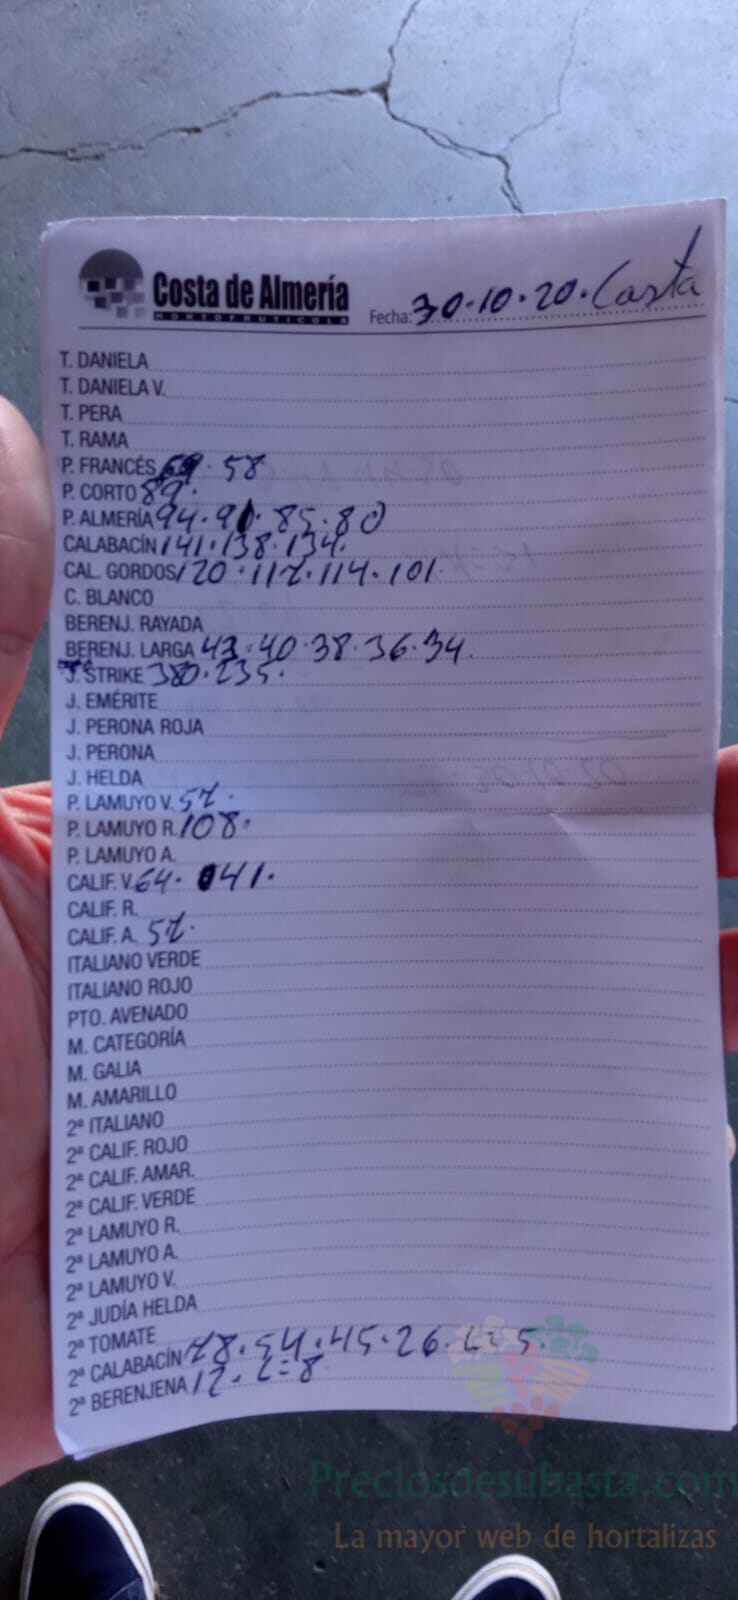 Costa de Almería
HORTOFRUTICOLA
Fecha: 30.10.20. Costa
T. DANIELA
T. DANIELA V.
T. PERA
T. RAMA
P. FRANCÉS 69. 58
P. CORTO 89.
P. ALMERÍA 94. 91. 85. 80
CALABACÍN 141. 138. 134.
CAL. GORDOS 120. 117. 114. 101.
C. BLANCO
BERENJ. RAYADA
BERENJ. LARGA 43. 40. 38. 36. 34.
J. STRIKE 380. 235.
J. EMÉRITE
J. PERONA ROJA
J. PERONA
J. HELDA
P. LAMUYO V. 57.
P. LAMUYO R. 108.
P. LAMUYO A.
CALIF. V. 64. 41.
CALIF. R.
CALIF. A. 57.
ITALIANO VERDE
ITALIANO ROJO
PTO. AVENADO
M. CATEGORÍA
M. GALIA
M. AMARILLO
2ª ITALIANO
2ª CALIF. ROJO
2ª CALIF. AMAR.
2ª CALIF. VERDE
2ª LAMUYO R.
2ª LAMUYO A.
2ª LAMUYO V.
2ª JUDÍA HELDA
2ª TOMATE
2ª CALABACÍN 78. 54. 45. 26.
2ª BERENJENA 12.
Preciosdesubasta.com
La mayor web de hortalizas